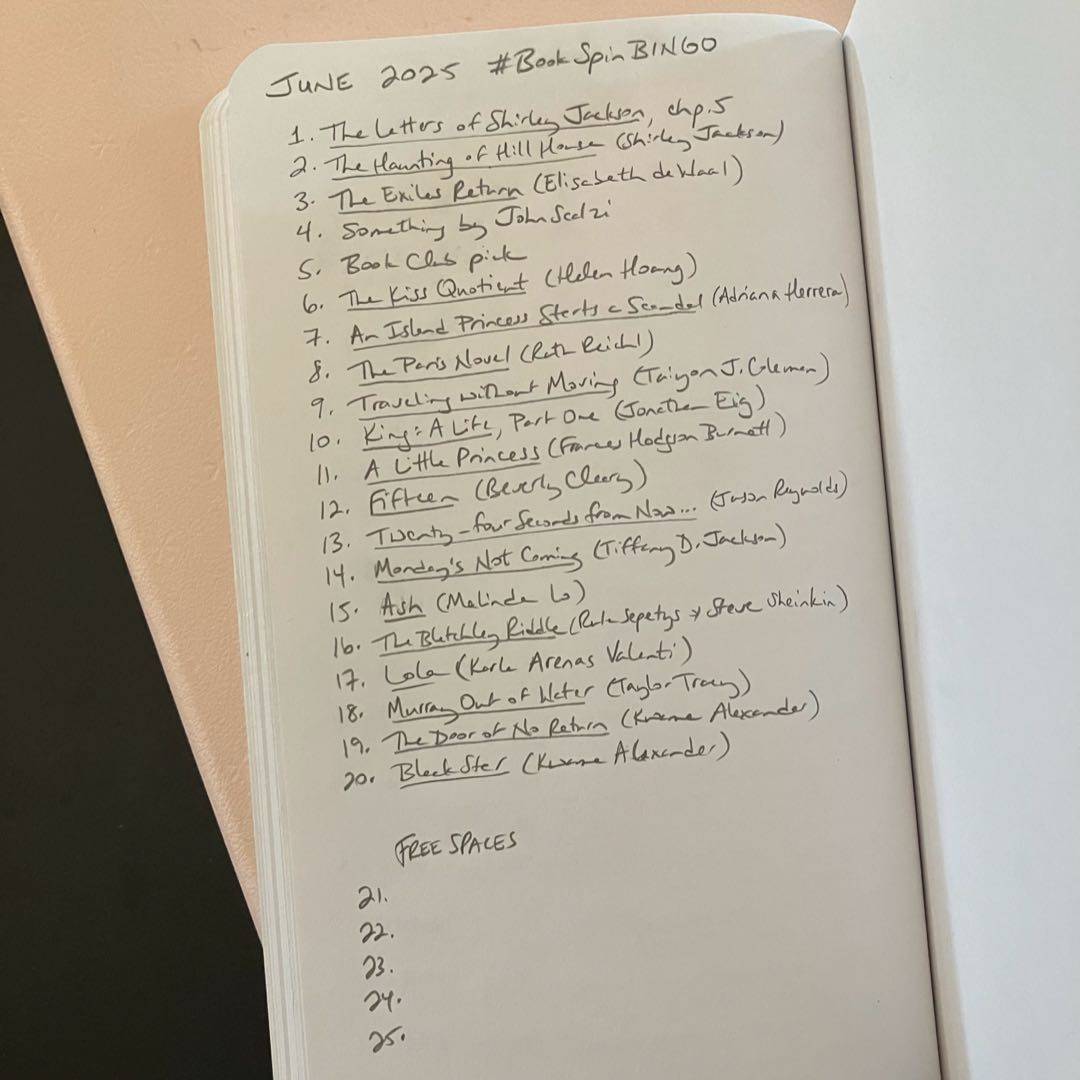 JUNE 2025 #BookSpinBINGO
1. The Letters of Shirley Jackson, chp. 5
2. The Haunting of Hill House (Shirley Jackson)
3. The Exiles Return (Elisabeth de Waal)
4. Something by John Scalzi
5. Book Club pick
6. The Kiss Quotient (Helen Hoang)
7. An Island Princess Starts a Scandal (Adriana Herrera)
8. The Paris Novel (Ruth Reichl)
9. Traveling without Moving (Taiyon J. Coleman)
10. King: A Life, Part One (Jonathan Eig)
11. A Little Princess (Frances Hodgson Burnett)
12. Fifteen (Beverly Cleary)
13. Twenty-four Seconds from Now... (Jason Reynolds)
14. Monday's Not Coming (Tiffany D. Jackson)
15. Ash (Malinda Lo)
16. The Bletchley Riddle (Ruta Sepetys + Steve Sheinkin)
17. Lola (Karla Arenas Valenti)
18. Murray Out of Water (Taylor Tracy)
19. The Door of No Return (Kwame Alexander)
20. Black Star (Kwame Alexander)
FREE SPACES
21.
22.
23.
24.
25.